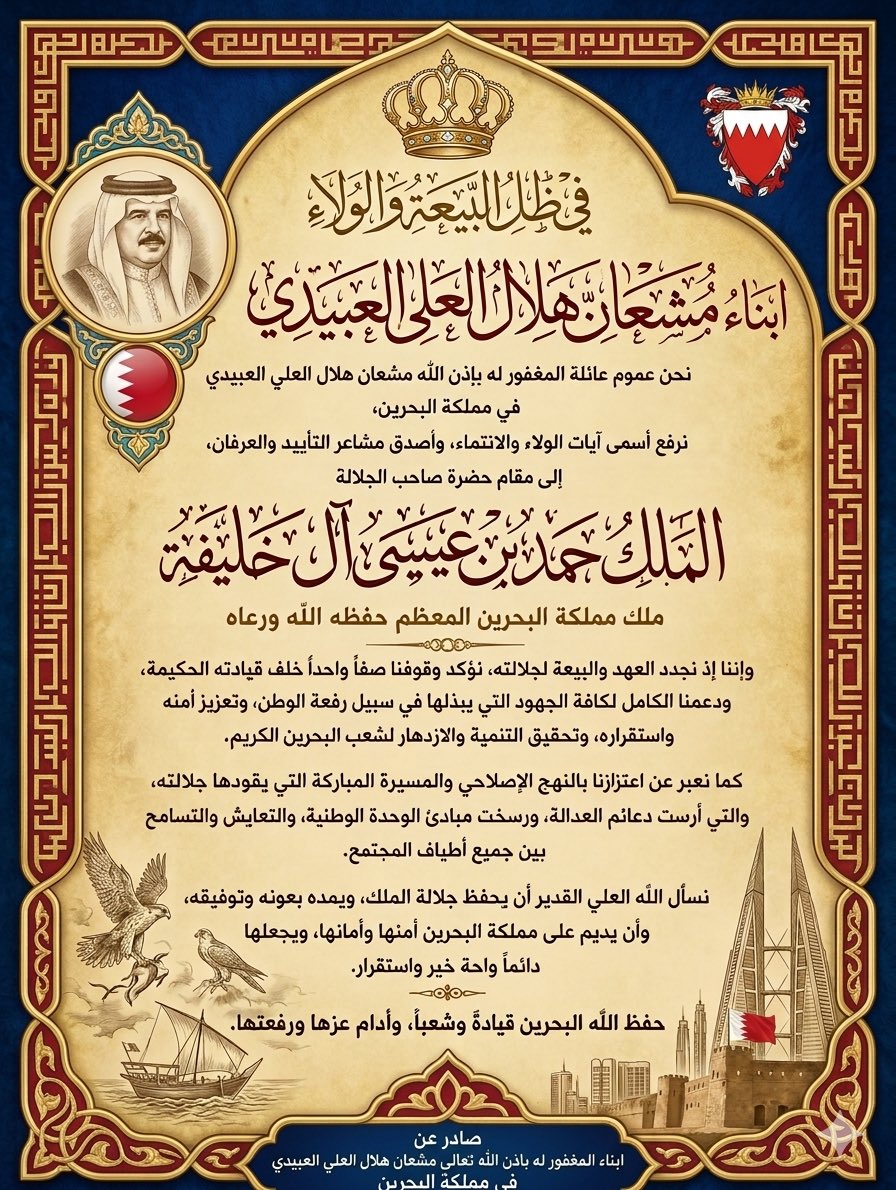 في ظل البيعة والولاء
ابناء مشعان هلال العلي العبيدي
نحن عموم عائلة المغفور له بإذن الله مشعان هلال العلي العبيدي
في مملكة البحرين،
نرفع أسمى آيات الولاء والانتماء، وأصدق مشاعر التأييد والعرفان،
إلى مقام حضرة صاحب الجلالة
الملك حمد بن عيسى آل خليفة
ملك مملكة البحرين المعظم حفظه الله ورعاه
وإننا إذ نجدد العهد والبيعة لجلالته، نؤكد وقوفنا صفاً واحداً خلف قيادته الحكيمة،
ودعمنا الكامل لكافة الجهود التي يبذلها في سبيل رفعة الوطن، وتعزيز أمنه
واستقراره، وتحقيق التنمية والازدهار لشعب البحرين الكريم.
كما نعبر عن اعتزازنا بالنهج الإصلاحي والمسيرة المباركة التي يقودها جلالته،
والتي أرست دعائم العدالة، ورسخت مبادئ الوحدة الوطنية، والتعايش والتسامح
بين جميع أطياف المجتمع.
نسأل الله العلي القدير أن يحفظ جلالة الملك، ويمده بعونه وتوفيقه،
وأن يديم على مملكة البحرين أمنها وأمانها، ويجعلها
دائماً واحة خير واستقرار.
حفظ الله البحرين قيادةً وشعباً، وأدام عزها ورفعتها.
صادر عن
ابناء المغفور له باذن الله تعالى مشعان هلال العلي العبيدي
في مملكة البحرين